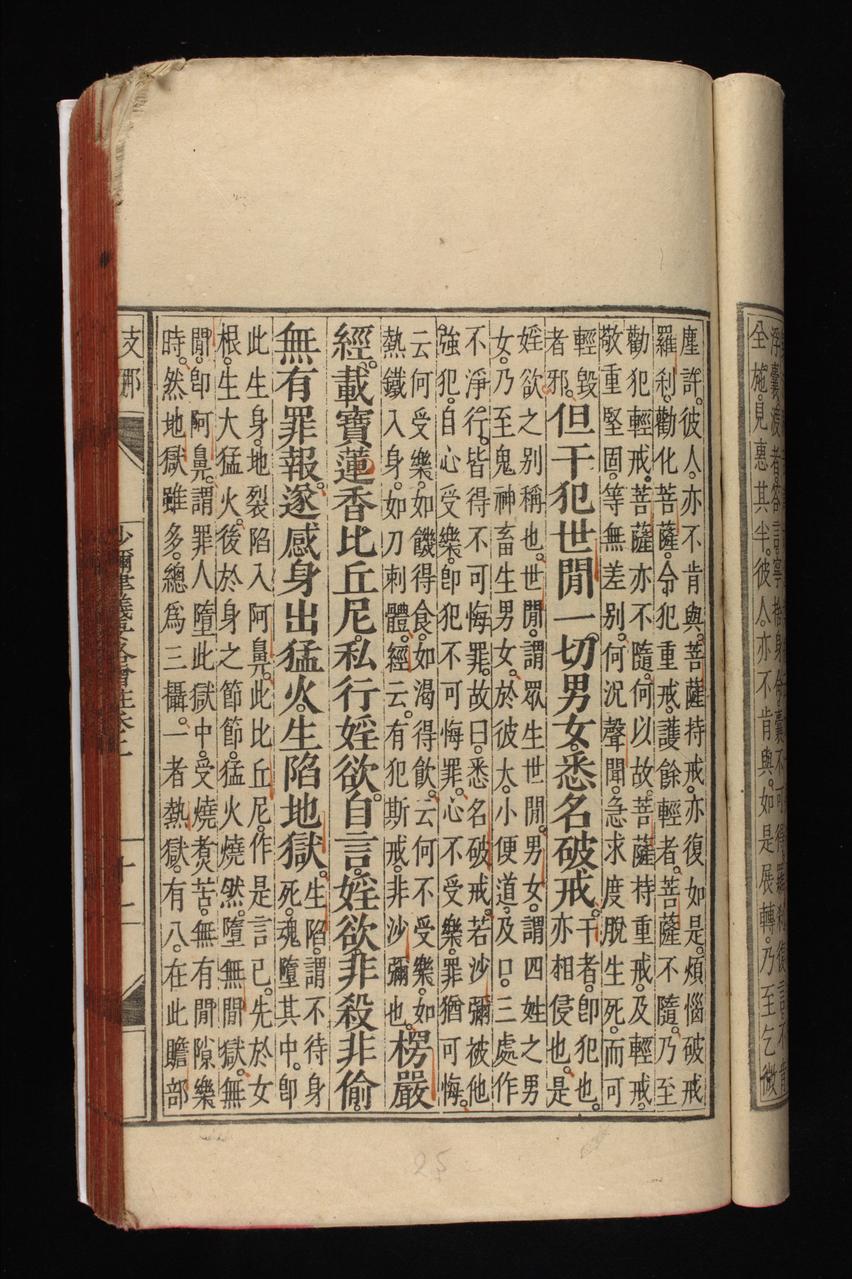 全施。見惠其半。彼人亦不肯與。如是展轉。乃至乞微
塵許。彼人亦不肯與。菩薩持戒。亦復如是。煩惱破戒
羅剎。勸化菩薩。令犯重戒。護餘輕者。菩薩不隨。乃至
勸犯輕戒。菩薩亦不隨。何以故。菩薩持重戒。及輕戒。
敬重堅固。等無差別。何況聲聞。急求度脫生死。而可
輕毀
者邪。
但干犯世閒一切男女。悉名破戒。
干者。卽犯也。
亦相侵也。是
婬欲之別稱也。世閒。謂眾生世閒。男女。謂四姓之男
女。乃至鬼神畜生男女。於彼大。小便道。及口。三處作
不淨行。皆得不可悔罪。故曰。悉名破戒。若沙彌被他
強犯。自心受樂。卽犯不可悔罪。心不受樂。罪猶可悔。
云何受樂。如饑得食。如渴得飲。云何不受樂。如
熱鐵入身。如刀刺體。經云。有犯斯戒。非沙彌也。
楞嚴
經。載寶蓮香比丘尼。私行婬欲。自言。婬欲。非殺非偷。
無有罪報。遂感身出猛火。生陷地獄。
生陷。謂不待身
死。魂墮其中。卽
此生身。地裂陷入阿鼻。此比丘尼。作是言已。先於女
根。生大猛火。後於身之節節。猛火燒然。墮無閒獄。無
閒。卽阿鼻。謂罪人墮此獄中。受燒煑苦。無有閒隙樂
時。然地獄雖多。總爲三攝。一者熱獄。有八。在此贍部
支那
沙彌律儀要略會註卷上